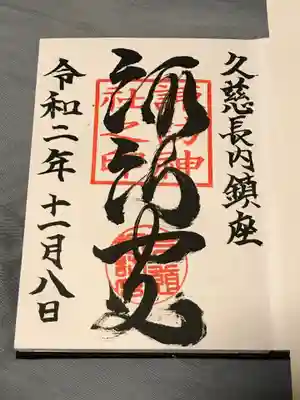 久慈長内鎮座
諏訪宮
諏訪神
社之印
令和二年十一月八日